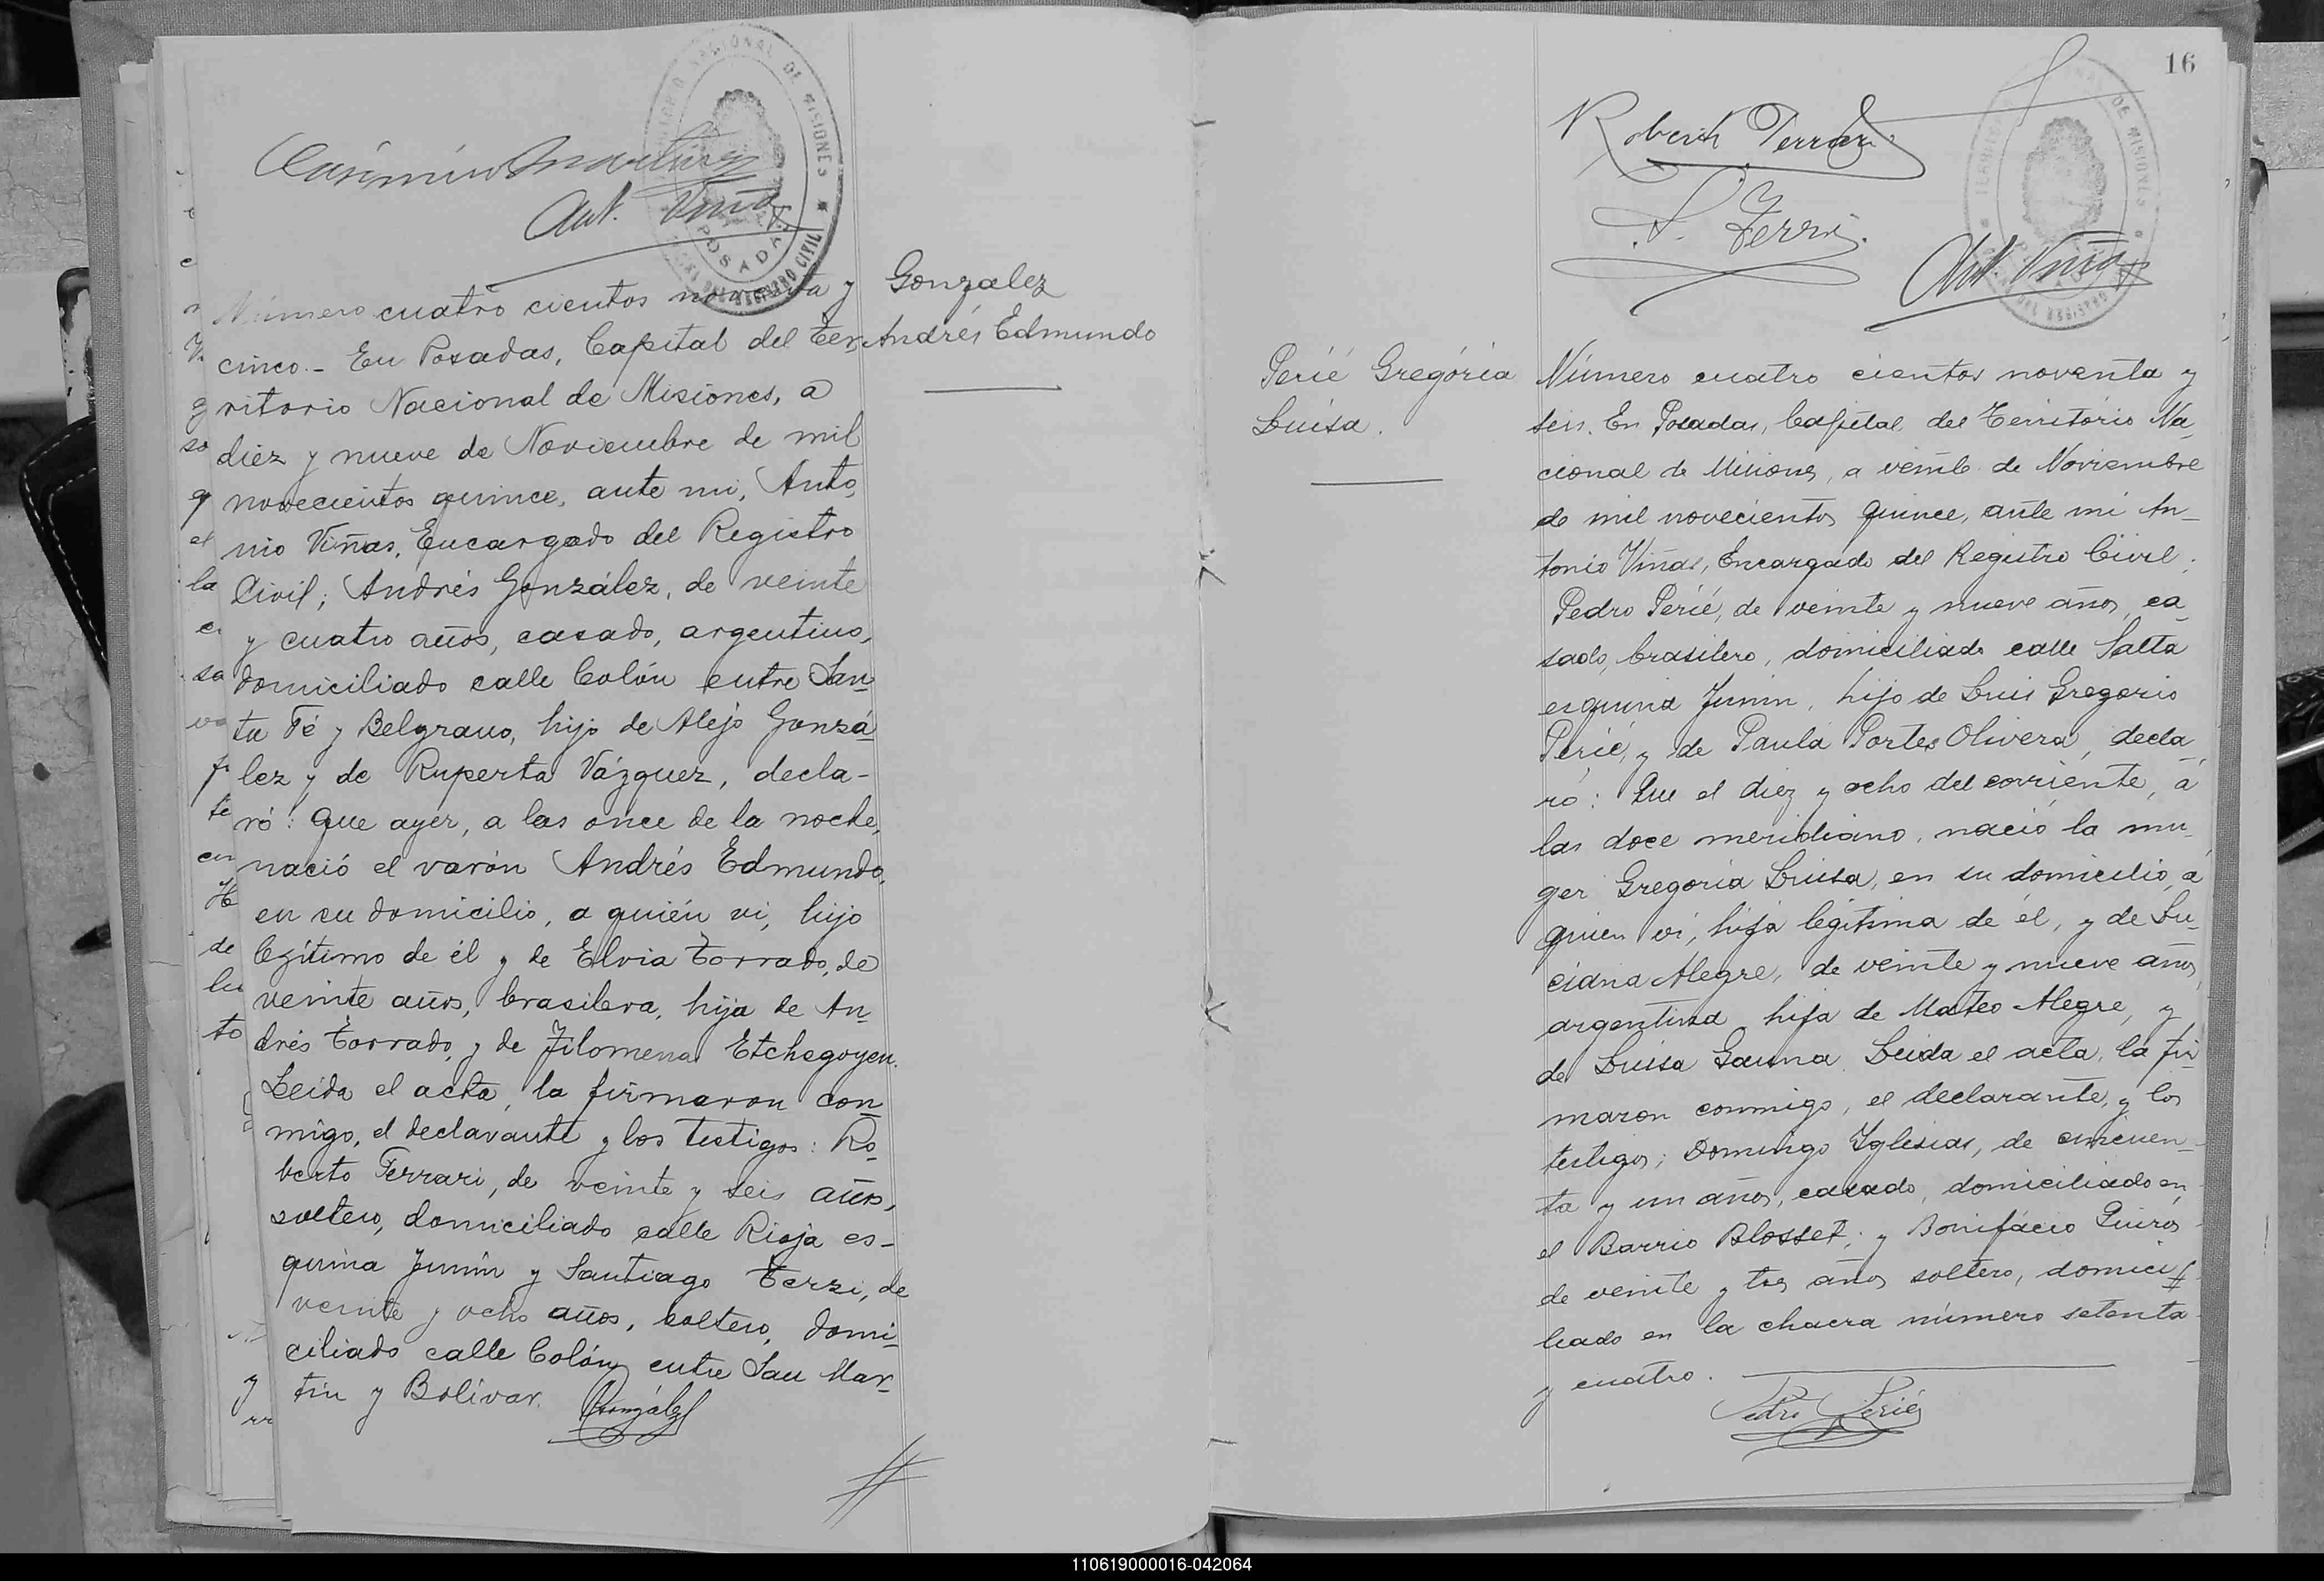 TERRITORIO NACIONAL DE MISIONES
POSADAS
REGISTRO CIVIL
Casimiro Martinez
Ant. Viñas
Gonzalez
Andrés Edmundo
Número cuatro cientos noventa y
cinco.- En Posadas, Capital del Ter-
ritorio Nacional de Misiones, a
diez y nueve de Noviembre de mil
novecientos quince, ante mi, Anto-
nio Viñas, Encargado del Registro
Civil; Andrés González, de veinte
y cuatro años, casado, argentino,
domiciliado calle Colón entre San-
ta Fé y Belgrano, hijo de Alejo Gonzá-
lez y de Ruperta Vázquez, decla-
ró: que ayer, a las once de la noche,
nació el varón Andrés Edmundo,
en su domicilio, a quién vi, hijo
legítimo de él y de Elvia Torrado, de
veinte años, brasilera, hija de An-
drés Torrado, y de Filomena Etchegoyen.
Leida el acta, la firmaron con-
migo, el declarante y los testigos: Ro-
berto Ferrari, de veinte y seis años,
soltero, domiciliado calle Rioja es-
quina Junín y Santiago Terzi, de
veinte y ocho años, soltero, domi-
ciliado calle Colón entre San Mar-
tín y Bolívar.
AGonzález
16
TERRITORIO NACIONAL DE MISIONES
REGISTRO
Roberto Ferrari
S. Terzi.
Ant. Viñas
Perié Gregória
Luisa.
Número cuatro cientos noventa y
seis. En Posadas, Capital del Territorio Na-
cional de Misiones, a veinte de Noviembre
de mil novecientos quince, ante mi An-
tonio Viñas, Encargado del Registro Civil;
Pedro Perié, de veinte y nueve años, ca-
sado, brasilero, domiciliado calle Salta
esquina Junin, hijo de Luis Gregorio
Perié, y de Paula Portes Olivera, decla-
ró: Que el diez y ocho del corriente, á
las doce meridiano, nació la mu-
ger Gregoria Luisa, en su domicilio, á
quien vi, hija legítima de él, y de Lu-
ciana Alegre, de veinte y nueve años,
argentina hija de Mateo Alegre, y
de Luisa Gauna. Leida el acta, la fir-
maron conmigo, el declarante, y los
testigos; Domingo Yglesias, de cincuen-
ta y un años, casado, domiciliado en
el Barrio Blosset; y Bonifácio Quirós
de veinte y tres años soltero, domici-
liado en la chacra número setenta
y cuatro.
Pedro Perié
110619000016-042064